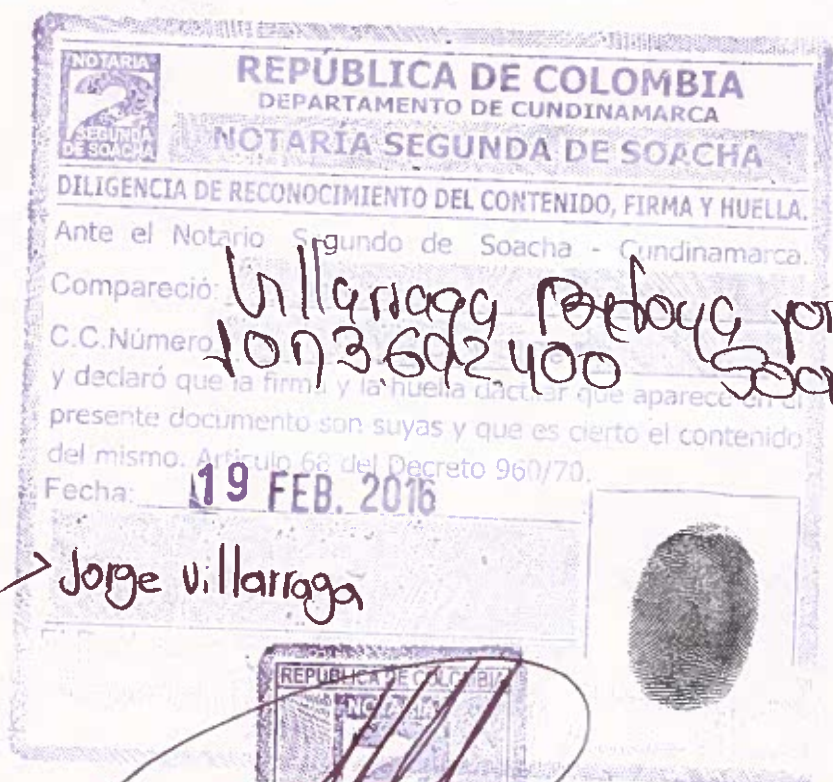 NOTARIA
2
SEGUNDA
DE SOACHA
REPÚBLICA DE COLOMBIA
DEPARTAMENTO DE CUNDINAMARCA
NOTARÍA SEGUNDA DE SOACHA
DILIGENCIA DE RECONOCIMIENTO DEL CONTENIDO, FIRMA Y HUELLA.
Ante el Notario Segundo de Soacha - Cundinamarca.
Compareció: Villarraga Bedoya Jor
C.C.Número 1073.602.400 Soa
y declaró que la firma y la huella dactilar que aparece en el
presente documento son suyas y que es cierto el contenido
del mismo. Artículo 68 del Decreto 960/70.
Fecha: 19 FEB. 2016
Jorge Villarraga
REPUBLICA DE COLOMBIA
NOTARIA